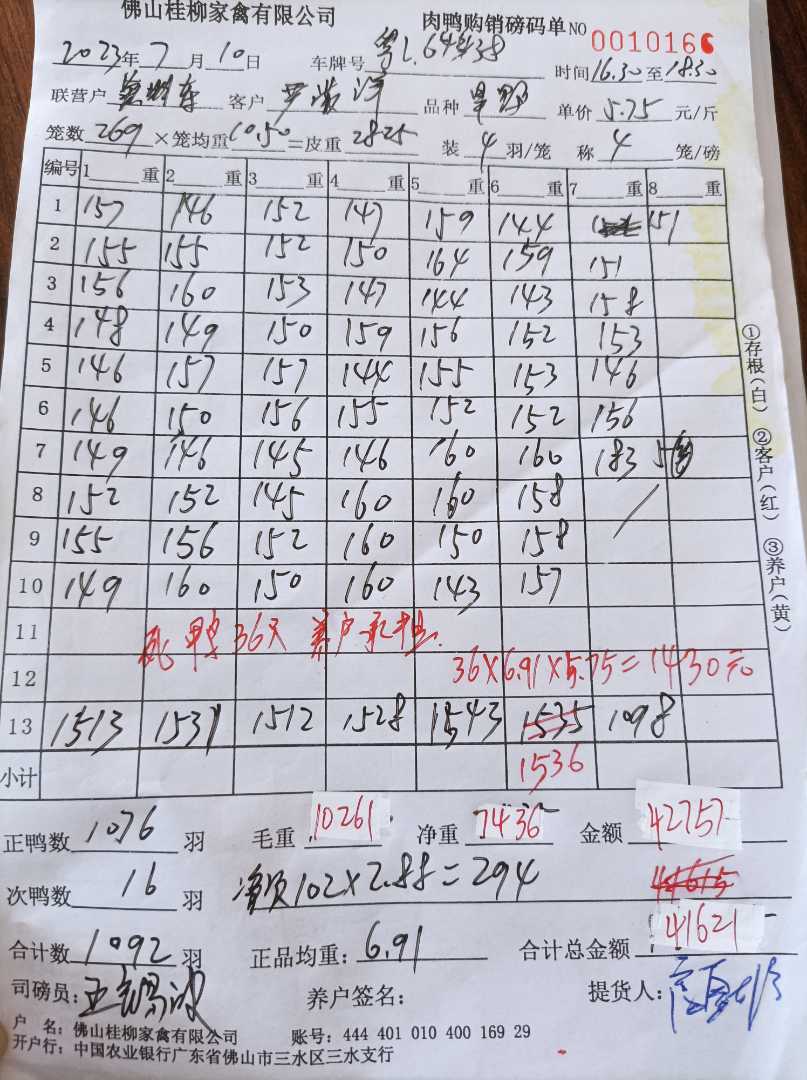 佛山桂柳家禽有限公司 肉鸭购销磅码单 NO 0010166
2023年7月10日 车牌号 粤L.64438 时间16.30至18.30
联营户 客户 品种 单价 5.75 元/斤
笼数 269 ×笼均重10.50=皮重 2825 装 4 羽/笼 称 4 笼/磅
编号 1 重 2 重 3 重 4 重 5 重 6 重 7 重 8 重
1 157 146 152 147 159 144 151
2 155 155 152 150 164 159 151
3 156 160 153 147 144 143 158
4 148 149 150 159 156 152 153
5 146 157 157 144 155 153 146
6 146 150 156 155 152 152 156
7 149 146 145 146 160 160 183
8 152 152 145 160 160 158
9 155 156 152 160 150 158
10 149 160 150 160 143 157
11 死鸭36只 养户承担.
12 36×6.91×5.75=1430元
13 1513 1531 1512 1528 1543 1535 1098
小计 1536
正鸭数 1076 羽 毛重 10261 净重 7436 金额 42757
次鸭数 16 羽 102×2.88=294 44615
合计数 1092 羽 正品均重: 6.91 合计总金额 41621
司磅员: 养户签名: 提货人:
户 名: 佛山桂柳家禽有限公司 账号: 444 401 010 400 169 29
开户行: 中国农业银行广东省佛山市三水区三水支行
①存根(白) ②客户(红) ③养户(黄)